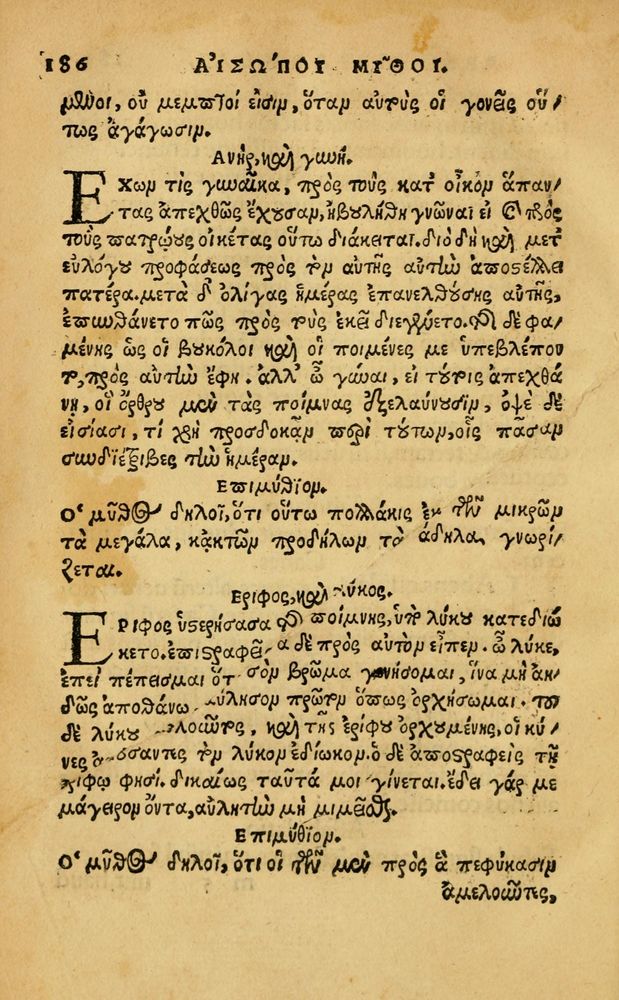 186 ΑΙΣΩΠΟΥ ΜΥΘΟΙ.
μῶνοι, οὐ μεμπτοί εἰσιν, ὅταν αὐτοὺς οἱ γονεῖς οὕ-
τως ἀγάγωσιν.
Ανὴρ, καὶ γυνή.
ΕΧων τὶς γυναῖκα, πρὸς τοὺς κατ' οἶκον ἅπαν-
τας ἀπεχθῶς ἔχουσαν, ἠβουλήθη γνῶναι εἰ καὶ πρὸς
τοὺς πατρῴους οἰκέτας οὕτω διάκειται. διὸ δὴ καὶ μετ'
εὐλόγου προφάσεως πρὸς τὸν αὐτῆς αὐτὴν ἀποστέλλει
πατέρα. μετὰ δ' ὀλίγας ἡμέρας ἐπανελθούσης αὐτῆς,
ἐπυνθάνετο πῶς πρὸς τοὺς ἐκεῖ διεγένετο. τῆς δὲ φα-
μένης ὡς οἱ βουκόλοι καὶ οἱ ποιμένες με ὑπεβλέπον
το, πρὸς αὐτὴν ἔφη. ἀλλ' ὦ γύναι, εἰ τούτοις ἀπεχθά
νῃ, οἳ ὄρθρου μὲν τὰς ποίμνας ἐξελαύνουσιν, ὀψὲ δὲ
εἰσίασι, τί χρὴ προσδοκᾷν περὶ τούτων, οἷς πᾶσαν
συνδιέτριβες τὴν ἡμέραν.
Επιμύθιον.
Ο' μῦθος δηλοῖ, ὅτι οὕτω πολλάκις ἐκ τῶν μικρῶν
τὰ μεγάλα, κἀκ τῶν προδήλων τὰ ἄδηλα γνωρί-
ζεται.
Εριφος, καὶ λύκος.
ΕΡιφος ὑστερήσασα τῆς ποίμνης, ὑπὸ λύκου κατεδιώ
κετο. ἐπιστραφεῖσα δὲ πρὸς αὐτὸν εἶπεν. ὦ λύκε,
ἐπεὶ πέπεισμαι ὅτι σὸν βρῶμα γενήσομαι, ἵνα μὴ ἀη-
δῶς ἀποθάνω αὔλησον πρῶτον ὅπως ὀρχήσωμαι. τοῦ
δὲ λύκου αὐλοῦντος, καὶ τῆς ἐρίφου ὀρχουμένης, οἱ κύ-
νες ἀκούσαντες τὸν λύκον ἐδίωκον. ὁ δὲ ἀποστραφεὶς τῇ
ἐρίφῳ φησί. δικαίως ταῦτά μοι γίνεται. ἔδει γάρ με
μάγειρον ὄντα, αὐλητὴν μὴ μιμεῖσθαι.
Επιμύθιον.
Ο' μῦθος δηλοῖ, ὅτι οἱ τῶν μὲν πρὸς ἃ πεφύκασιν
ἀμελοῦντες,